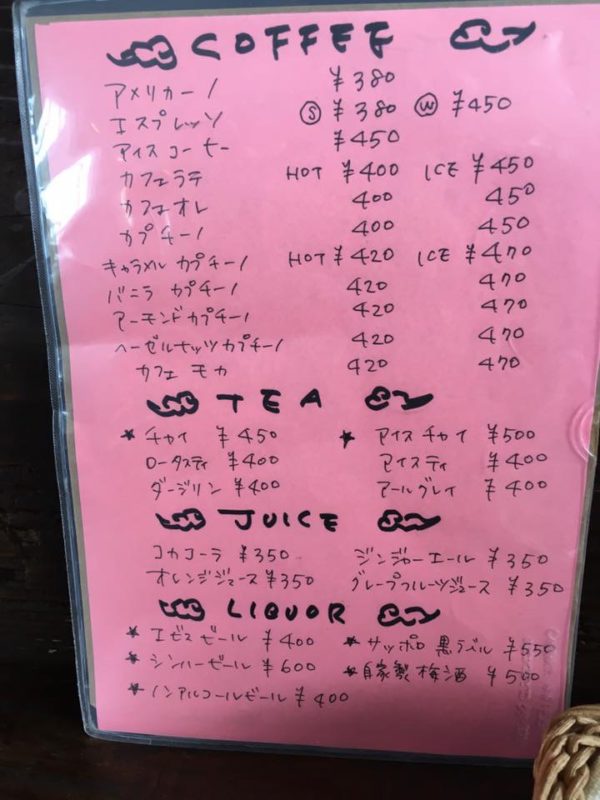 COFFEE
アメリカーノ ¥380
エスプレッソ Ⓢ ¥380 Ⓦ ¥450
アイスコーヒー ¥450
カフェラテ HOT ¥400 ICE ¥450
カフェオレ 400 450
カプチーノ 400 450
キャラメルカプチーノ HOT ¥420 ICE ¥470
バニラカプチーノ 420 470
アーモンドカプチーノ 420 470
ヘーゼルナッツカプチーノ 420 470
カフェモカ 420 470
TEA
★チャイ ¥450 ★アイスチャイ ¥500
ロータスティ ¥400 アイスティ ¥400
ダージリン ¥400 アールグレイ ¥400
JUICE
コカコーラ ¥350 ジンジャーエール ¥350
オレンジジュース ¥350 グレープフルーツジュース ¥350
LIQUOR
★エビスビール ¥400 ★サッポロ黒ラベル ¥550
★シンハービール ¥600 ★自家製梅酒 ¥500
★ノンアルコールビール ¥400